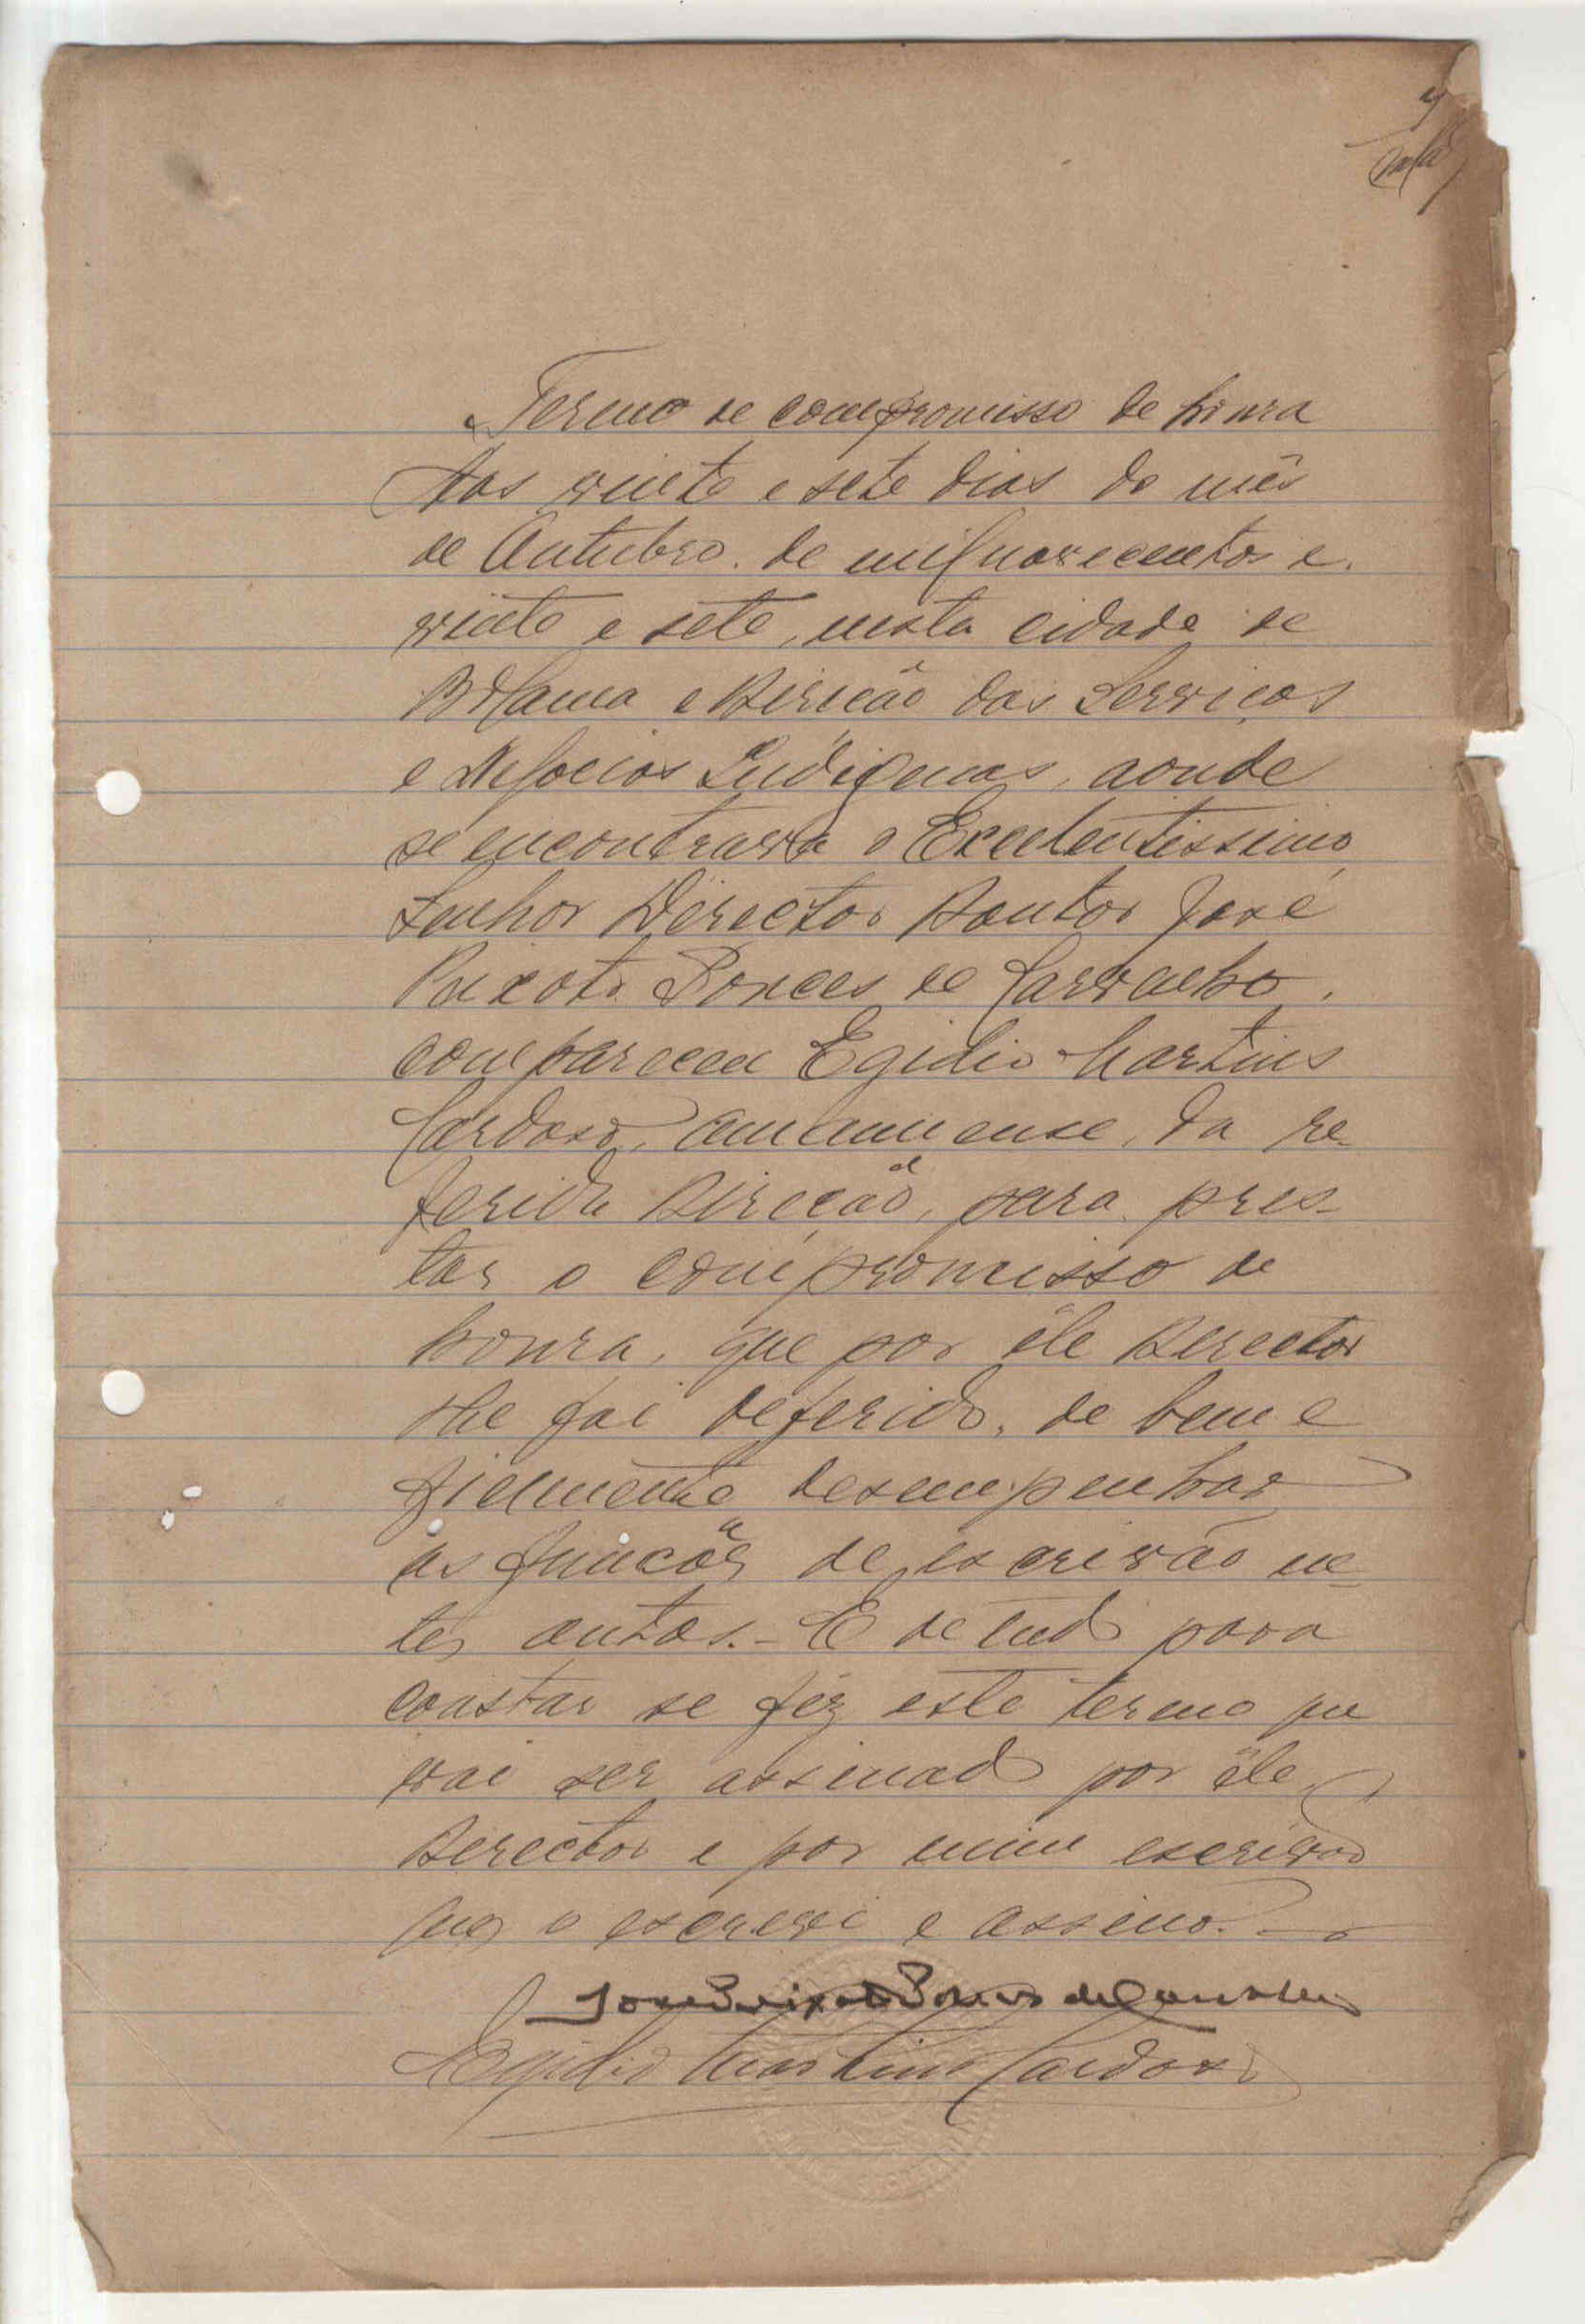 Termo de compromisso de honra
Aos vinte e sete dias do mês
de Outubro de mil novecentos e
vinte e sete, nesta cidade de
Bolama e Direcção dos Serviços
e Negocios Indigenas, aonde
se encontrava o Excelentissimo
Senhor Director Doutor José
Peixoto Ponces de Carvalho,
compareceu Egidio Martins
Cardoso, amanuense, da re-
ferida Direcção, para pres-
tar o compromisso de
honra, que por êle Director
lhe foi deferido, de bem e
fielmente desempenhar
as funcões de escrivão nes-
tes autos. - E de tudo para
constar se fêz este termo que
vai ser assinado por êle
Director e por mim escrivão
que o escrevi e assino. -
José Peixoto Ponces de Carvalho
Egidio Martins Cardoso